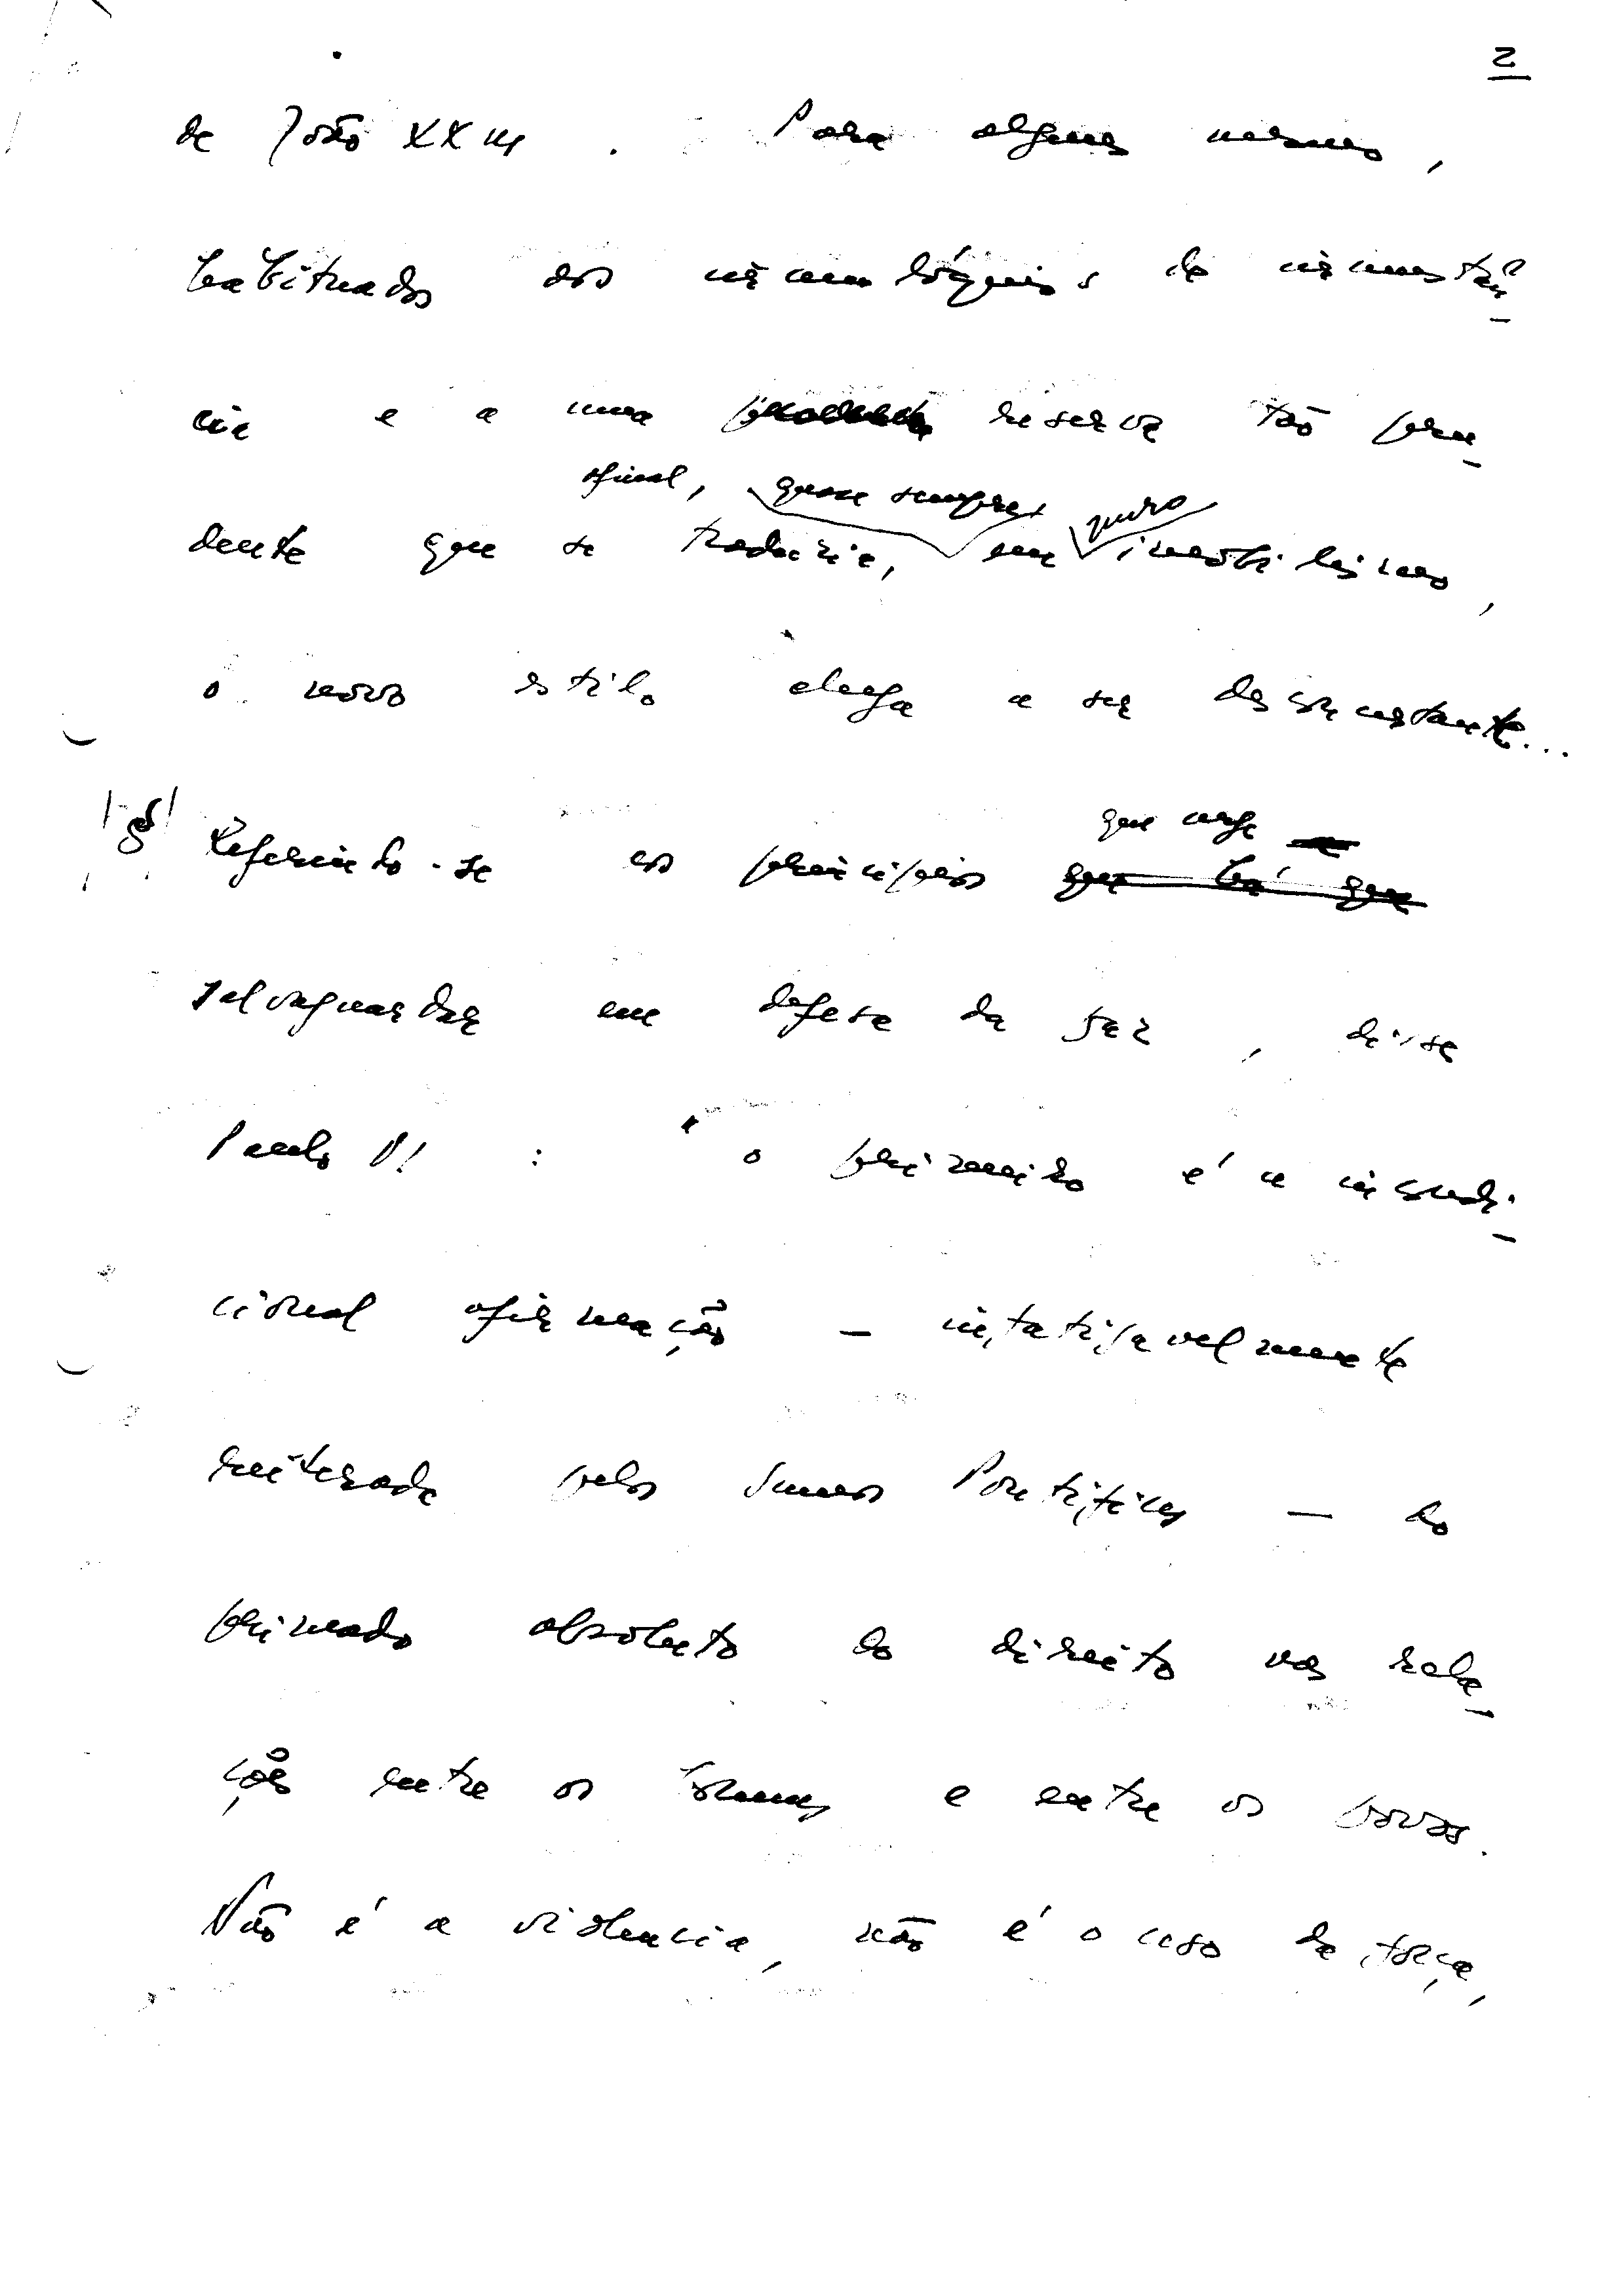 2
de João XXIII. Para alguns mesmo,
habituados aos circunlóquios de circunstân-
cia e a uma reserva tão pru-
afinal, quase sempre, puro
dente que se traduzia, em imobilismo,
o novo estilo chega a ser desconcertante...
Referindo-se aos princípios que há que
que urge
salvaguardar em defesa da paz, disse
Paulo VI : "o primeiro é a incondi-
cional afirmação — infatigavelmente
reiterada pelos Sumos Pontífices — do
primado absoluto do direito nas rela-
ções entre os homens e entre os povos.
Não é a violencia, não é o uso da força,